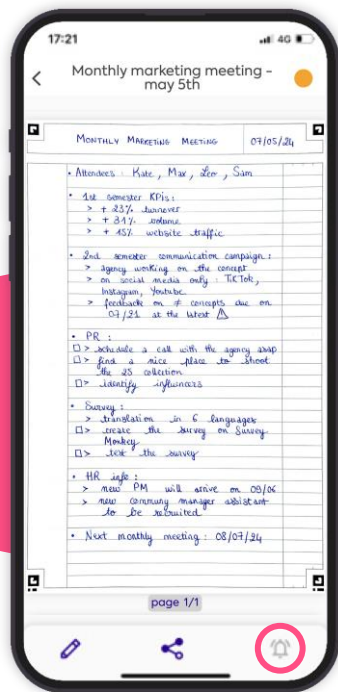 17:21 4G
Monthly marketing meeting -
may 5th
MONTHLY MARKETING MEETING 07/05/24
• Attendees : Kate, Max, Leo, Sam
• 1st semester KPIs :
> + 23% turnover
> + 31% volume
> + 45% website traffic
• 2nd semester communication campaign :
> agency working on the concept
> on social media only : TikTok,
Instagram, Youtube
> feedback on ≠ concepts due on
07/21 at the latest ⚠
• PR :
☐ > schedule a call with the agency asap
☐ > find a nice place to shoot
the 25 collection
☐ > identify influencers
• Survey :
> translation in 6 languages
☐ > create the survey on Survey
Monkey
☐ > test the survey
• HR info :
> new PM will arrive on 09/06
> new communy manager assistant
to be recruited
• Next monthly meeting : 08/07/24
page 1/1